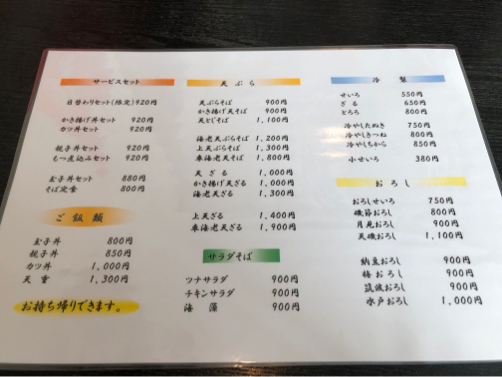 サービスセット
日替わりセット(限定) 920円
かき揚げ丼セット 920円
カツ丼セット 920円
親子丼セット 920円
もつ煮込みセット 920円
玉子丼セット 880円
そば定食 800円
ご飯類
玉子丼 800円
親子丼 850円
カツ丼 1,000円
天重 1,300円
お持ち帰りできます。
天ぷら
天ぷらそば 900円
かき揚げ天そば 900円
天とじそば 1,100円
海老天ぷらそば 1,200円
上天ぷらそば 1,300円
車海老天そば 1,800円
天ざる 1,000円
かき揚げ天ざる 1,000円
海老天ざる 1,300円
上天ざる 1,400円
車海老天ざる 1,900円
サラダそば
ツナサラダ 900円
チキンサラダ 900円
海藻 900円
冷製
せいろ 550円
ざる 650円
とろろ 800円
冷やしたぬき 750円
冷やしきつね 800円
冷やしちから 850円
小せいろ 380円
おろし
おろしせいろ 750円
磯節おろし 800円
月見おろし 900円
天磯おろし 1,100円
納豆おろし 900円
梅おろし 900円
筑波おろし 900円
水戸おろし 1,000円